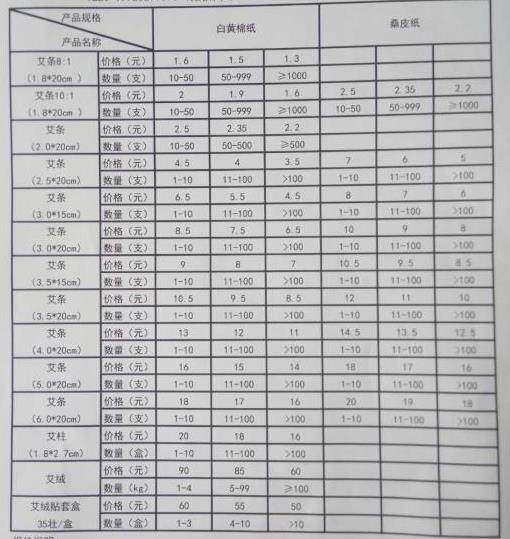 产品规格 白黄棉纸 桑皮纸
产品名称
艾条8:1 价格（元） 1.6 1.5 1.3
（1.8*20cm ） 数量（支） 10-50 50-999 ≥1000
艾条10:1 价格（元） 2 1.9 1.6 2.5 2.35 2.2
（1.8*20cm ） 数量（支） 10-50 50-999 ≥1000 10-50 50-999 ≥1000
艾条 价格（元） 2.5 2.35 2.2
（2.0*20cm） 数量（支） 10-50 50-500 ≥500
艾条 价格（元） 4.5 4 3.5 7 6 5
（2.5*20cm） 数量（支） 1-10 11-100 >100 1-10 11-100 >100
艾条 价格（元） 6.5 5.5 4.5 8 7 6
（3.0*15cm） 数量（支） 1-10 11-100 >100 1-10 11-100 >100
艾条 价格（元） 8.5 7.5 6.5 10 9 8
（3.0*20cm） 数量（支） 1-10 11-100 >100 1-10 11-100 >100
艾条 价格（元） 9 8 7 10.5 9.5 8.5
（3.5*15cm） 数量（支） 1-10 11-100 >100 1-10 11-100 >100
艾条 价格（元） 10.5 9.5 8.5 12 11 10
（3.5*20cm） 数量（支） 1-10 11-100 >100 1-10 11-100 >100
艾条 价格（元） 13 12 11 14.5 13.5 12.5
（4.0*20cm） 数量（支） 1-10 11-100 >100 1-10 11-100 >100
艾条 价格（元） 16 15 14 18 17 16
（5.0*20cm） 数量（支） 1-10 11-100 >100 1-10 11-100 >100
艾条 价格（元） 18 17 16 20 19 18
（6.0*20cm） 数量（支） 1-10 11-100 >100 1-10 11-100 >100
艾柱 价格（元） 20 18 16
（1.8*2.7cm） 数量（盒） 1-10 11-100 >100
艾绒 价格（元） 90 85 60
数量（kg） 1-4 5-99 ≥100
艾绒贴套盒 价格（元） 60 55 50
35壮/盒 数量（盒） 1-3 4-10 >10